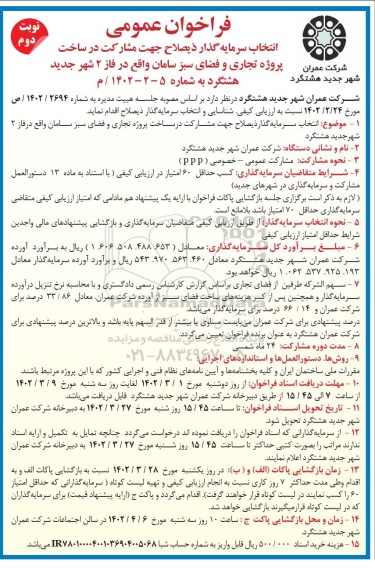 نوبت دوم
فراخوان عمومی
انتخاب سرمایه گذار ذیصلاح جهت مشارکت در ساخت
پروژه تجاری و فضای سبز سامان واقع در فاز ۲ شهر جدید
هشتگرد به شماره ۵-۲-۱۴۰۲ / م
شرکت عمران
شهر جدید هشتگرد
شرکت عمران شهر جدید هشتگرد درنظر دارد بر اساس مصوبه جلسه هیبت مدیره به شماره ۲۶۹۴ / ۱۴۰۲ / ص
مورخ ۱۴۰۲/۲/۲۴ نسبت به ارزیابی کیفی، شناسایی و انتخاب سرمایه گذار ذیصلاح اقدام نماید.
۱ - موضوع: انتخاب سرمایه گذارذیصلاح جهت مشارکت درساخت پروژه تجاری و فضای سبز سامان واقع درفاز ۲
شهرجدید هشتگرد
۲- نام و نشانی دستگاه: شرکت عمران شهر جدید هشتگرد
۳ - نحوه مشارکت: مشارکت عمومی – خصوصی ( p p p )
۴- شرایط متقاضیان سرمایه گذاری: کسب حداقل ۶۰ امتیاز در ارزیابی کیفی ( با استناد به ماده ۱۳ دستورالعمل
مشارکت و سرمایه گذاری در شهرهای جدید)
( لازم به ذکر است برگزاری جلسه بازگشایی پاکات فراخوان با ارایه یک پیشنهاد هم مادامی که امتیاز ارزیابی کیفی متقاضی
سرمایه گذاری حداقل ۷۰ امتیاز باشد بلامانع است.
۵ - نحوه انتخاب سرمایه گذار: از طریق ارزیابی کیفی متقاضیان سرمایه گذاری و بازگشایی پیشنهادهای مالی واجدین
شرایط حداقل امتیاز ارزیابی کیفی
۶ - مبلغ برآورد کل سرمایه گذاری: معادل ( ۱.۶۰۶.۵۰۸.۴۸۸.۶۵۳ ) ریال به برآورد آورده
شرکت عمران شهر جدید هشتگرد معادل ۵۴۳.۹۷۰.۵۶۳.۴۶۰ ریال و برآورد آورده سرمایه گذار معادل
۱.۰۶۲.۵۳۷.۹۲۵.۱۹۳ ریال خواهد بود.
۷ – سهم الشرکه طرفین از فضای تجاری براساس گزارش کارشناس رسمی دادگستری و با محاسبه نرخ تنزیل درآورده
سرمایه گذار و همچنین پس از کسر هزینه های ساخت فضای سبز از آورده شرکت عمران، معادل ۸۶ / ۳۳ درصد برای
شرکت عمران و ۱۴ / ۶۶ درصد برای سرمایه گذار می باشد.
درصد پیشنهادی برای شرکت عمران می بایست مساوی یا بیشتر از قدر السهم پایه باشد و بالاترین درصد پیشنهادی برای
شرکت عمران هشتگرد به عنوان برنده فراخوان تعیین می گردد.
۸ – مدت دوره مشارکت: ۲۴ ماه شمسی
۹- روش ها، دستورالعمل ها و استانداردهای اجرایی:
مقررات ملی ساختمان ایران و کلیه بخشنامه ها و آیین نامه های نظام فنی و اجرایی کشور که با این پروژه مرتبط باشند.
۱۰ - مهلت دریافت اسناد فراخوان: از روز دوشنبه مورخ ۱ / ۳ / ۱۴۰۲ لغایت روز سه شنبه مورخ ۹ / ۳ / ۱۴۰۲
از ساعت ۷ الی ۴۵ / ۱۵ از طریق دبیرخانه شرکت عمران شهر جدید هشتگرد قابل دریافت می باشد.
۱۱ - تاریخ تحویل اسناد فراخوان: تا ساعت ۴۵ / ۱۵ روز شنبه مورخ ۲۷ / ۳ / ۱۴۰۲ به دبیرخانه شرکت عمران
شهر جدید هشتگرد تحویل شود.
۱۲ - از سرمایه گذارانی که اسناد فراخوان را دریافت نموده اند درخواست می گردد چنانچه تمایل به تکمیل و ارایه اسناد
ندارند مراتب را بصورت کتبی حداکثر تا ساعت ۴۵ / ۱۵ روز شنبه مورخ ۲۷ / ۳ / ۱۴۰۲ به دبیرخانه شرکت عمران
شهر جدید هشتگرد اعلام نمایند.
۱۳ - زمان بازگشایی پاکات (الف) و ( ب): در روز یکشنبه مورخ ۲۸ / ۳ / ۱۴۰۲ نسبت به بازگشایی پاکات الف و به
اقدام وطی مدت حداکثر ۷ روز کاری نسبت به انجام ارزیابی کیفی و تهیه لیست کوتاه ( سرمایه گذارانی که حداقل امتیاز
۶۰ را کسب نمایند در لیست کوتاه قرار خواهند گرفت)، اقدام می گردد و پاکت ج (ارایه پیشنهاد قیمت) برای سرمایه گذاران
که در لیست کوتاه قرارمیگیرند بازگشایی خواهد شد.
۱۴ - زمان و محل بازگشایی پاکت ج : ساعت ۱۰ روز سه شنبه مورخ ۶ / ۴ / ۱۴۰۲ در سالن اجتماعات شرکت عمران
شهر جدید هشتگرد.
۱۵ - هزینه خرید اسناد ۵۰۰/۰۰۰ ریال قابل واریز به شماره حساب شبا IR۷۸۰۱۰۰۰۰۴۰۰۱۰۳۶۹۰۴۰۰۵۰۶۸ می باشد.